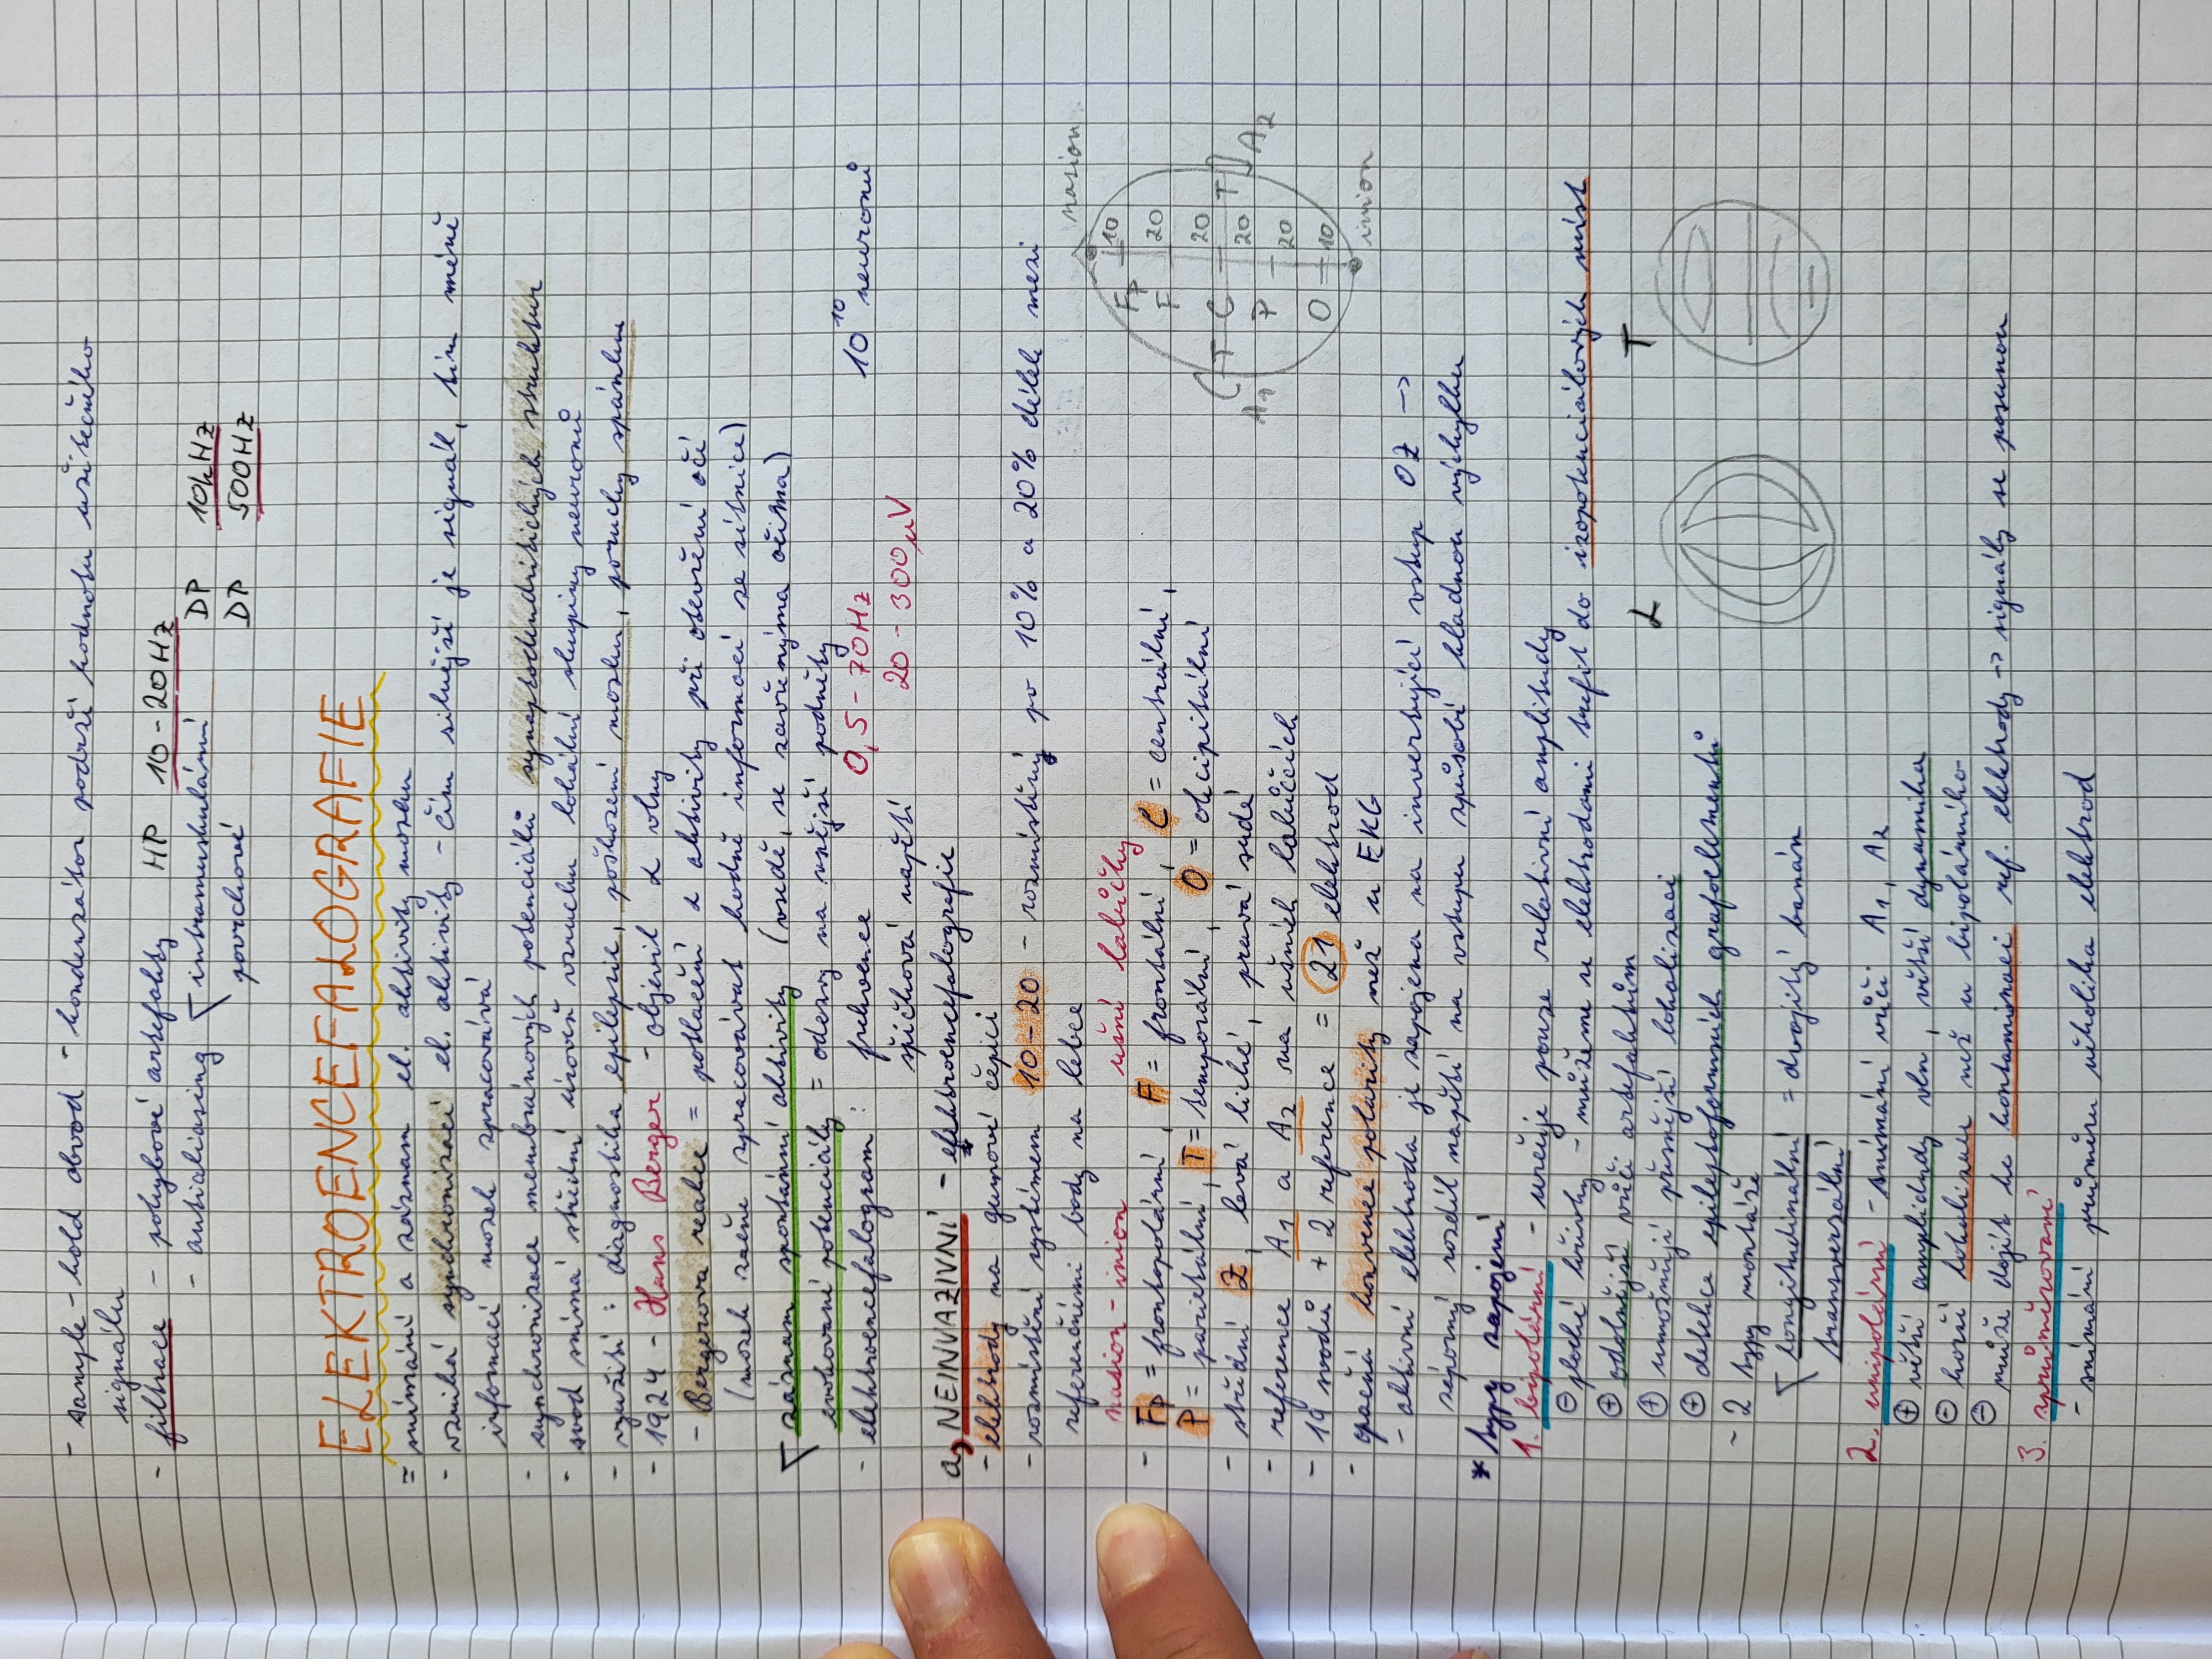 - sample-hold obvod - kondenzátor podrží hodnotu užitečného
signálu
- filtrace - pohybové artefakty HP 10-20Hz
- antialiasing intramuskulární DP 10kHz
povrchové DP 500Hz
ELEKTROENCEFALOGRAFIE
= snímání a záznam el. aktivity mozku
- vzniká synchronizací el. aktivity - čím silnější je signál, tím méně
infomací mozek zpracovává
- synchronizace membránových potenciálů synaptodendritických struktur
- svod snímá střední úroveň vzruchu lokální skupiny neuronů
- využití: diagnostika epilepsie, poškození mozku, poruchy spánku
- 1924 - Hans Berger - objevil α vlny
- Bergerova reakce = potlačení α aktivity při otevření očí
(mozek začne zpracovávat hodně informací ze sítnice)
záznam spontánní aktivity (vsedě, se zavřenýma očima)
evokované potenciály = odezvy na vnější podněty
- elektroencefalogram: frekvence 0,5-70Hz 10^10 neuronů
špičková napětí 20-300μV
a) NEINVAZIVNÍ - elektroencefalografie
- elektrody na gumové čepici
- rozmístění systémem 10-20 - rozmístěny po 10% a 20% délek mezi
referenčními body na lebce
nasion-inion ušní lalůčky
- Fp = frontopolární, F = frontální, C = centrální,
P = parietální, T = temporální, O = okcipitální
- střední Z, levá liché, pravá sudé
- reference A1 a A2 na ušních lalůčcích
- 19 svodů + 2 reference = 21 elektrod
- opačná konvence polarity než u EKG
- aktivní elektroda je zapojena na invertující vstup OZ ->
záporný rozdíl napětí na vstupu způsobí kladnou výchylku
nasion
Fp 10
F 20
20
A1 T C T A2
20
P
20
O 10
inion
* typy zapojení
1. bipolární - určuje pouze relativní amplitudy
⊖ ploché křivky - můžeme se elektrodami trefit do izopotenciálových míst
⊕ odolnější vůči artefaktům
⊕ umožňují přesnější lokalizaci
⊕ detekce epileptoformních grafoelementů
- 2 typy montáže
longitudinální = dvojitý banán
transverzální
L T
2. unipolární - snímání vůči A1, A2
⊕ větší amplidudy vln, větší dynamika
⊖ horší lokalizace než u bipolárního
⊖ může dojít ke kontaminaci ref. elektrody -> signály se posunou
3. zprůměrované
- snímání průměru několika elektrod